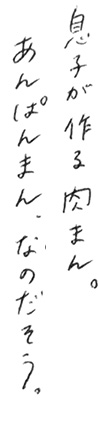 息子が作る肉まん。
あんぱんまん、なのだそう。